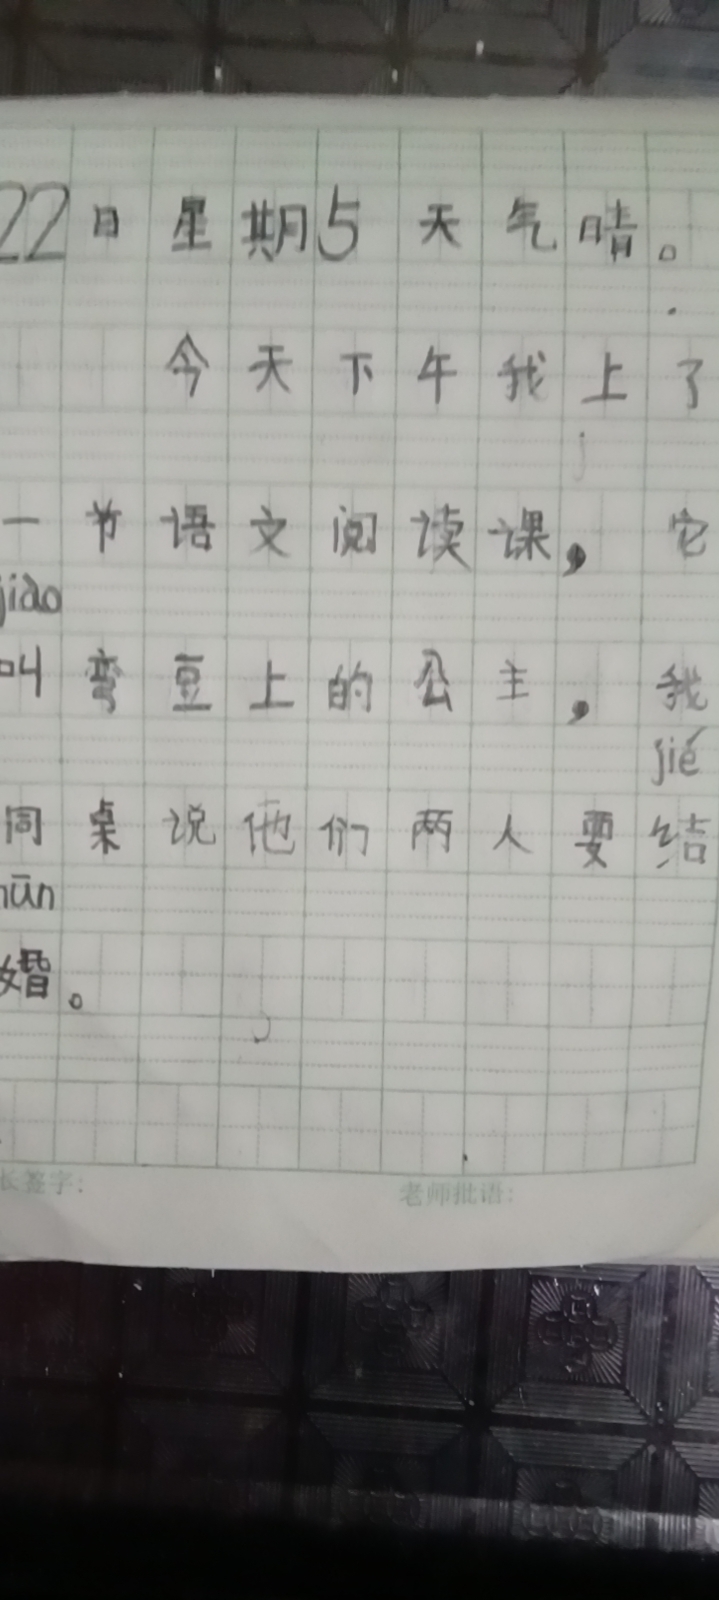 22日星期5天气晴。
今天下午我上了
j
一节语文阅读课，它
jiào
叫弯豆上的公主，我
jié
同桌说他们两人要结
hūn
婚。
长签字：
老师批语：